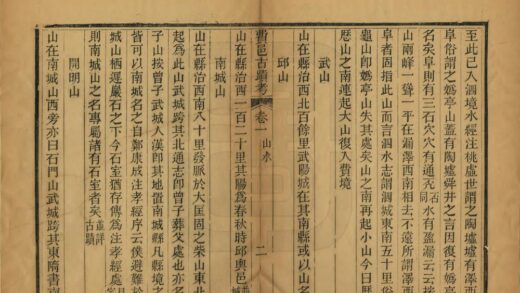 至此已入泗境水經注桃虛世謂之陶墟墟有澤
阜俗謂之嬀亭山蓋有陶墟舜井之言因復有嬀亭
名矣阜則有三石穴穴有通无水有盈漏云云按
山兩峰一聳一平在漏澤西南相去不遠所謂澤西
阜者因指此山而言泗水志謂泗城東南五十里俗
龜山卽嬀亭山失其處矣山之南再起小山今曰歷
歷山之南連起大山復入費境
武山
山在縣治西北百餘里武陽城在其南縣或以山名
邱山
費邑古蹟考 卷一 山水 二
山在縣治西一百二十里其陽爲春秋時邱輿邑
南城山
山在縣治西南八十里發脈於大匡固之柴山東北
起爲此山武城跨其北通志卽曾子葬父處也亦名
子山按曾子武城人漢卽其地置南城縣凡縣境之
皆可以南城名之自鄭康成注孝經序云僕避難於
城山棲遲巖石之下今石室猶存傳爲注孝經處
則南城山之名專屬諸有石室者矣詳古蹟
開明山
山在南城山西旁亦曰石門山武城跨其東隋書南